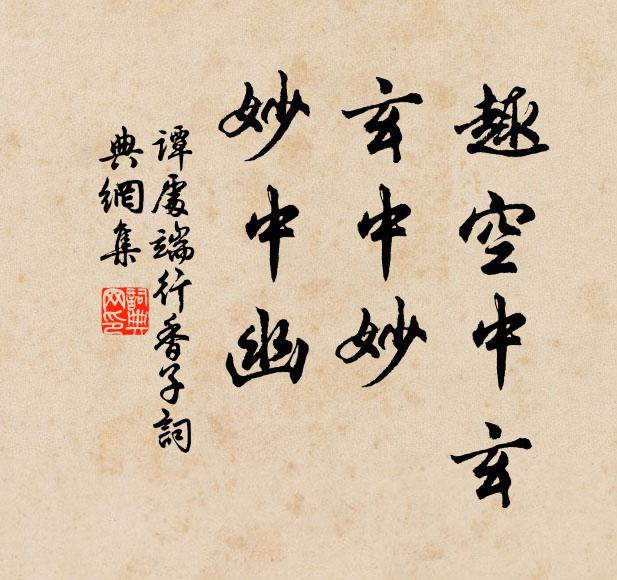 趣空中玄
玄中妙
妙中幽
譚處端行香子詞
典網集
詞典
网印